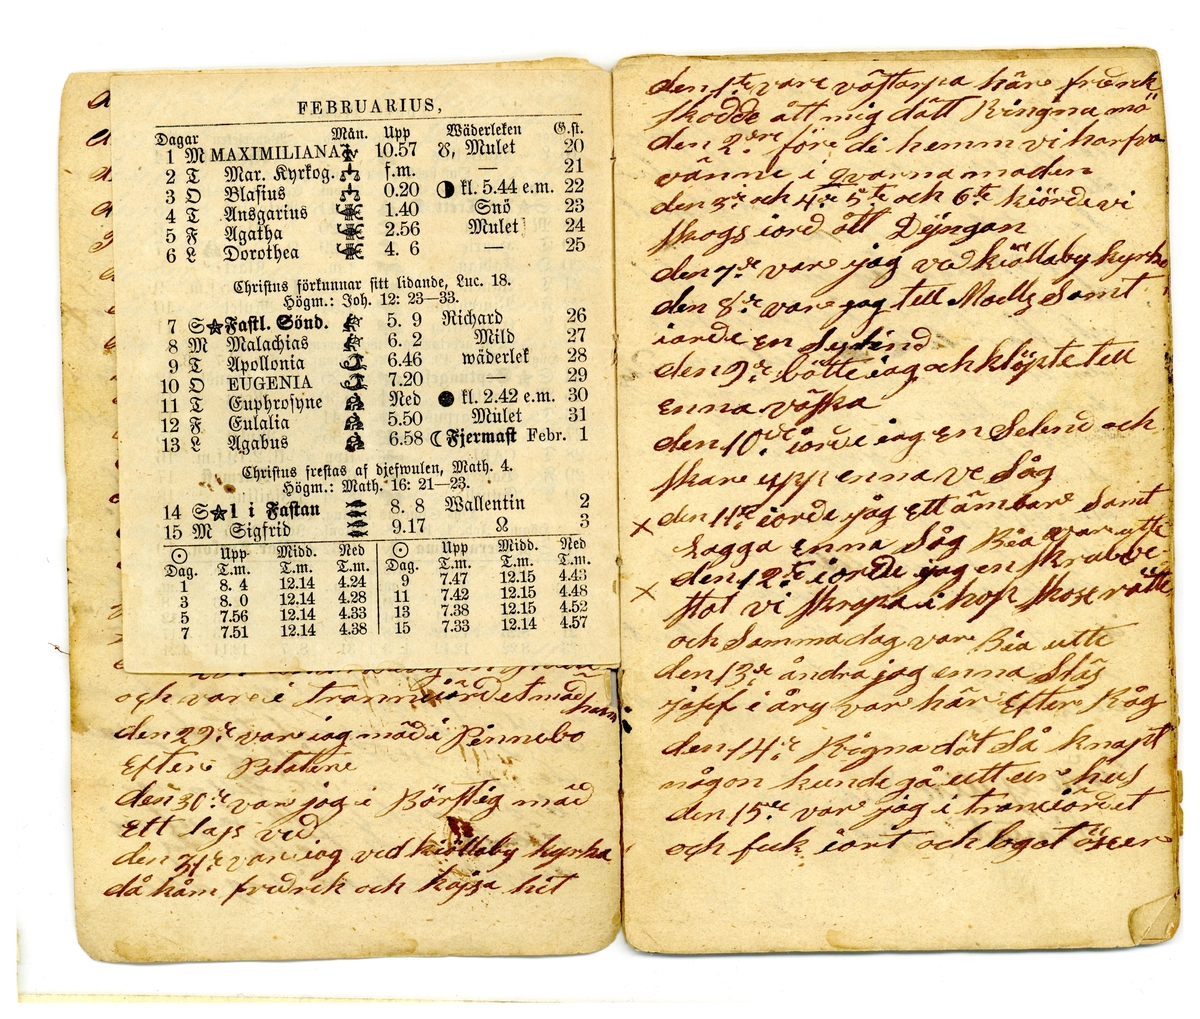 FEBRUARIUS,
Dagar Mån. Upp Wäderleken G.st.
1 M MAXIMILIANA 10.57 ☋, Mulet 20
2 T Mar. Kyrkog. f.m. — 21
3 O Blasius 0.20 ◑ kl. 5.44 e.m. 22
4 T Ansgarius 1.40 Snö 23
5 F Agatha 2.56 Mulet 24
6 L Dorothea 4. 6 — 25
Christus förkunnar sitt lidande, Luc. 18.
Högm.: Joh. 12: 23—33.
7 S Fastl. Sönd. 5. 9 Richard 26
8 M Malachias 6. 2 Mild 27
9 T Apollonia 6.46 wäderlek 28
10 O EUGENIA 7.20 — 29
11 T Euphrosyne Ned ● kl. 2.42 e.m. 30
12 F Eulalia 5.50 Mulet 31
13 L Agabus 6.58 ☾ Fjermast Febr. 1
Christus frestas af djefwulen, Math. 4.
Högm.: Math. 16: 21—23.
14 S 1 i Fastan 8. 8 Wallentin 2
15 M Sigfrid 9.17 ☊ 3
☉ Upp Midd. Ned ☉ Upp Midd. Ned
Dag. T.m. T.m. T.m. Dag. T.m. T.m. T.m.
1 8. 4 12.14 4.24 9 7.47 12.15 4.43
3 8. 0 12.14 4.28 11 7.42 12.15 4.48
5 7.56 12.14 4.33 13 7.38 12.15 4.52
7 7.51 12.14 4.38 15 7.33 12.14 4.57
och vare i tranmiördet mäd
den 29de var iag mäd i Pinnebo
Efter Potatere
den 30de var jog i Börstig mäd
Ett lass ved
den 31de var iag ved kiöllaby kyrka
då kåm fredrek och kajsa hit
den 1ste vare väftarpa häre fredrek
skodde ått mig dått Ringna mö
den 2dre före di hemm vi harfva
vänne i qvarnamaden
den 3de och 4de 5te och 6te kiörde vi
skogs iord ått Dÿngan
den 7de vare jag ved kiöllaby kyrka
den 8de var jag tell Maells Samt
iorde en Sylind
den 9de bötte iag och klöpte tell
enna väfka
den 10de iorde iag en Selend och
skare upp enna ve Såg
x den 11te iorde jag ett ämbare Samt
Lagga enna Såg Bea var utte
den 12te iorde jag en skrabbe
x stol vi skrapa i hop skose rätte
och Samma dag var Bea utte
den 13de ändra jag enna Släs
josef i årg var här Efter Råg
den 14de Rigna dät Så knapt
någon kunde gå utt ur hus
den 15de var jag i tranciördet
och feck iort och logat öser